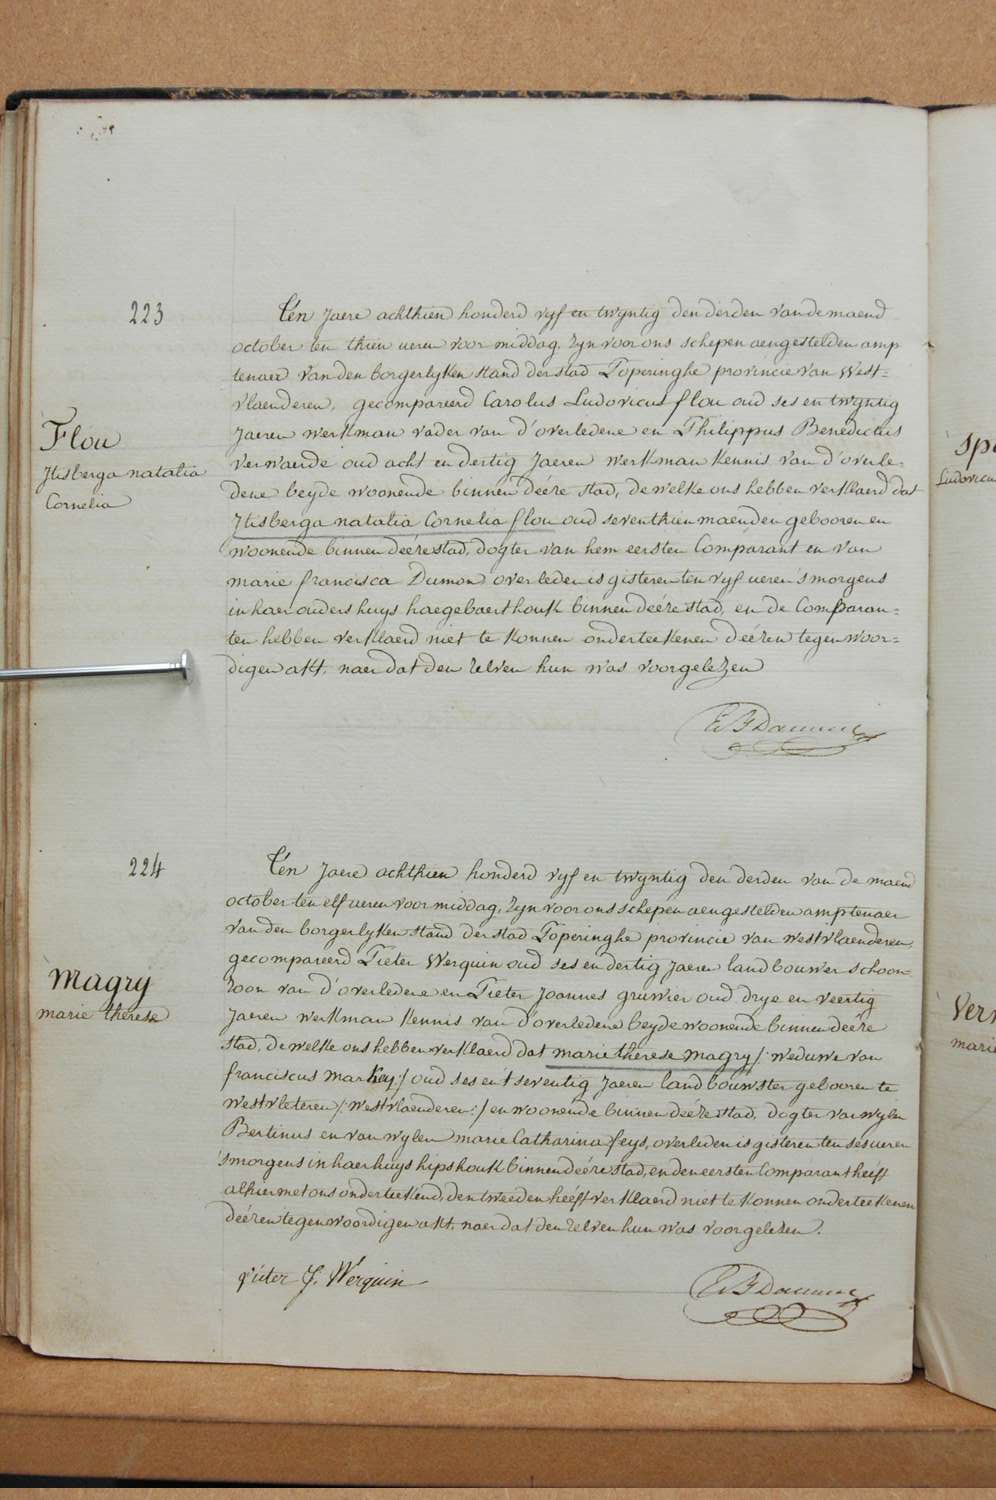 223
Flou
Itisberga natalia
Cornelia
Ten Jaere achthien honderd vyf en twyntig den derden van de maend
october ten thien ueren voor middag, zyn voor ons schepen aengestelden amp
tenaer van den borgerlyken stand der stad Poperinghe provincie van West=
vlaenderen, gecompareerd Carolus Ludovicus flou oud ses en twyntig
Jaeren werkman vader van d'overledene en Philippus Benedictus
verwaerde oud acht en dertig Jaeren werkman kennis van d'overle-
dene beyde woonende binnen deéze stad, de welke ons hebben verklaerd dat
Itisberga natalia Cornelia flou oud seventhien maenden gebooren en
woonende binnen deéze stad, dogter van hem eersten Comparant en van
marie francisca Dumon overleden is gisteren ten vyf ueren 's morgens
in haer ouders huys haegebaerthouk binnen deéze stad, en de Comparan=
ten hebben verklaerd niet te konnen onderteekenen deézen tegenwoor=
digen akt, naer dat den zelven hun was voorgelezen
224
Magry
marie therese
Ten Jaere achthien honderd vyf en twyntig den derden van de maend
october ten elf ueren voor middag, zyn voor ons schepen aengestelden amptenaer
van den borgerlyken stand der stad Poperinghe provincie van westvlaenderen
gecompareerd Pieter Werquin oud ses en dertig Jaeren landbouwer schoon=
zoon van d'overledene en Pieter Joannes gruwier oud drye en veertig
Jaeren werkman kennis van d'overledene beyde woonende binnen deéze
stad, de welke ons hebben verklaerd dat marie therese magry /: weduwe van
franciscus markey :/ oud ses en 't seventig Jaeren landbouwster gebooren te
westvleteren /: westvlaenderen :/ en woonende binnen deéze stad, dogter van wylen
Bertinus en van wylen marie Catharina feys, overleden is gisteren ten ses ueren
's morgens in haer huys hipshouk binnen deéze stad, en den eersten Comparant heeft
alhier met ons onderteekend, den tweeden heéft verklaerd niet te konnen onderteekenen
deézen tegenwoordigen akt, naer dat den zelven hun was voorgelezen.
pieter J. Werquin
Ludovicus
marie